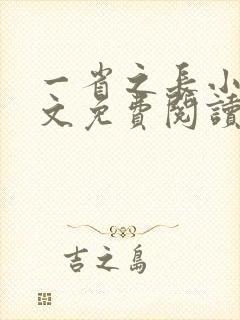 一省之長小
文免費閱讀
吉之島